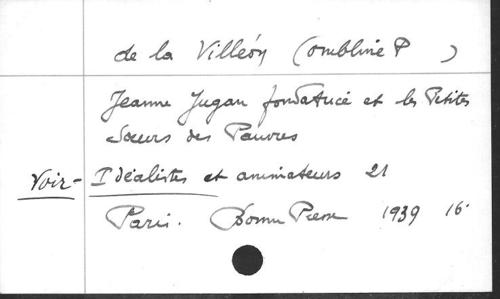 de la Villéon (Ombline P )
Jeanne Jugan fondatrice et les Petites
Sœurs des Pauvres
Voir - Idéalistes et animateurs 21
Paris. Bonne Presse 1939 16°